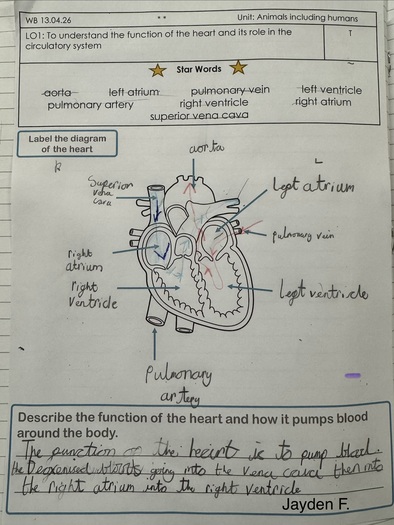 WB 13.04.26
Unit: Animals including humans
LO1: To understand the function of the heart and its role in the
circulatory system
T
Star Words
aorta left atrium pulmonary vein left ventricle
pulmonary artery right ventricle right atrium
superior vena cava
Label the diagram
of the heart
R
L
aorta
Superior
vena
cava
Left atrium
pulmonary vein
right
atrium
right
ventricle
Left ventricle
Pulmonary
artery
Describe the function of the heart and how it pumps blood
around the body.
The function of the heart is to pump blood.
the going into the vena cava then into
the right atrium into the right ventricle
Jayden F.